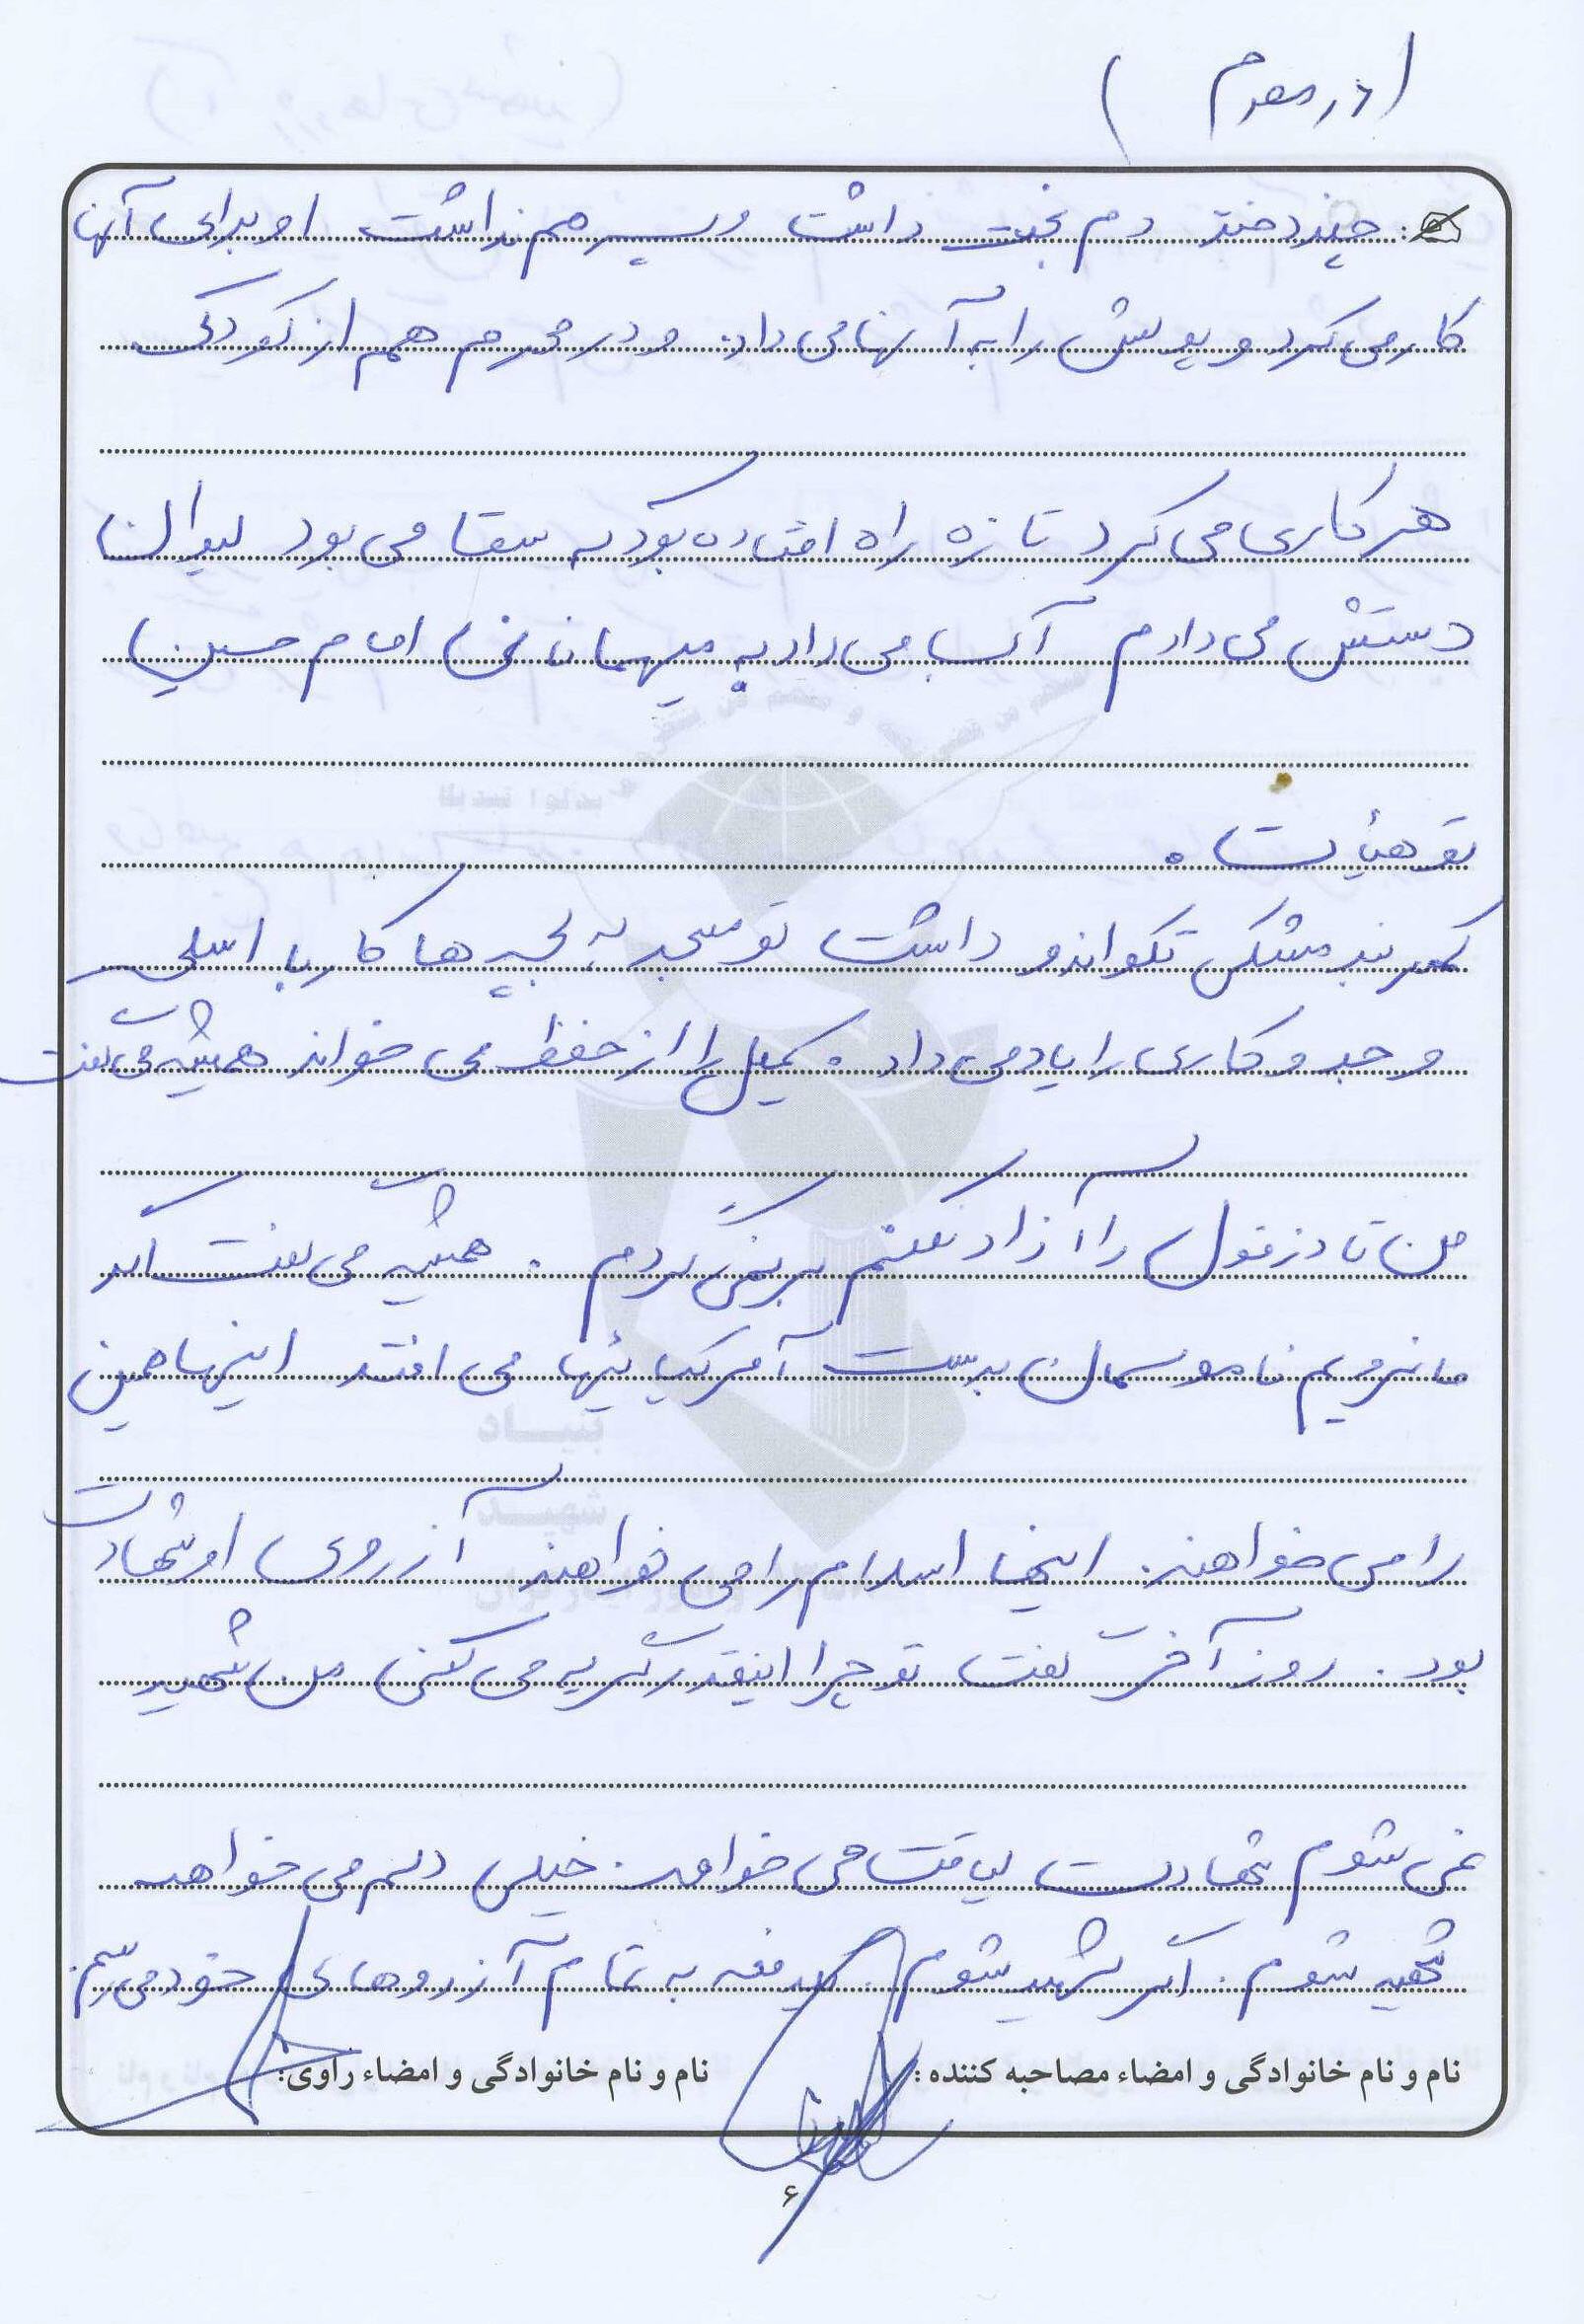 (در محرم)
: چند دختر دم بخت داشت و پسر هم نداشت او برای آنها
کار می کرد و پولش را به آنها می داد. و در محرم هم از کودکی
هر کاری می کرد تازه راه افتاده بود که سقا می بود لیوان
دستش می دادم آب می داد به میهمانان امام حسین
تو هیأت.
کمربند مشکی تکواندو داشت تو مسجد به بچه ها کار با اسلحه
و جدو کاری را یاد می داد. کمیل را از حفظ می خواند همیشه می گفت
من تا دزفول را آزاد نکنم بر نمی گردم. همیشه می گفت اگر
ما نرویم ناموسمان بدست آمریکایی‌ها می افتد اینها همین
را می خواهند. اینها اسلام را می خواهند آرزوی او شهادت
بود. روز آخر گفت تو چرا اینقدر گریه می کنی من شهید
نمی شوم شهادت لیاقت می خواهد. خیلی دلم می خواهد
شهید شوم. اگر شهید شوم. یدفعه به تمام آرزوهای خود می رسم.
نام و نام خانوادگی و امضاء مصاحبه کننده: نام و نام خانوادگی و امضاء راوی:
۶
بنیاد
شهید